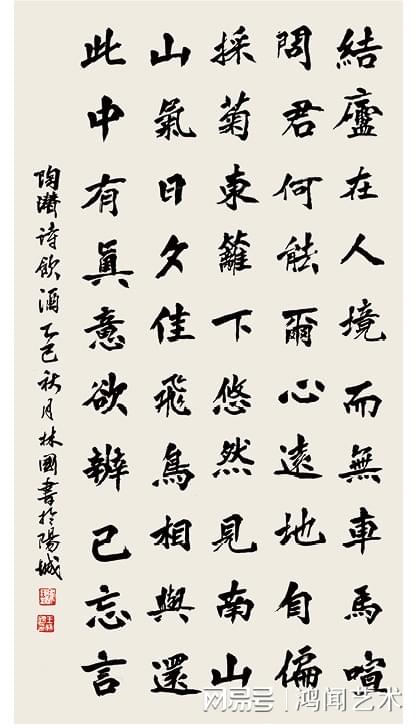 結廬在人境而無車馬喧
問君何能爾心遠地自偏
採菊東籬下悠然見南山
山氣日夕佳飛鳥相與還
此中有眞意欲辨已忘言
陶潛詩飲酒乙巳秋月林國書於陽城
网易号 | 鸿闻艺术